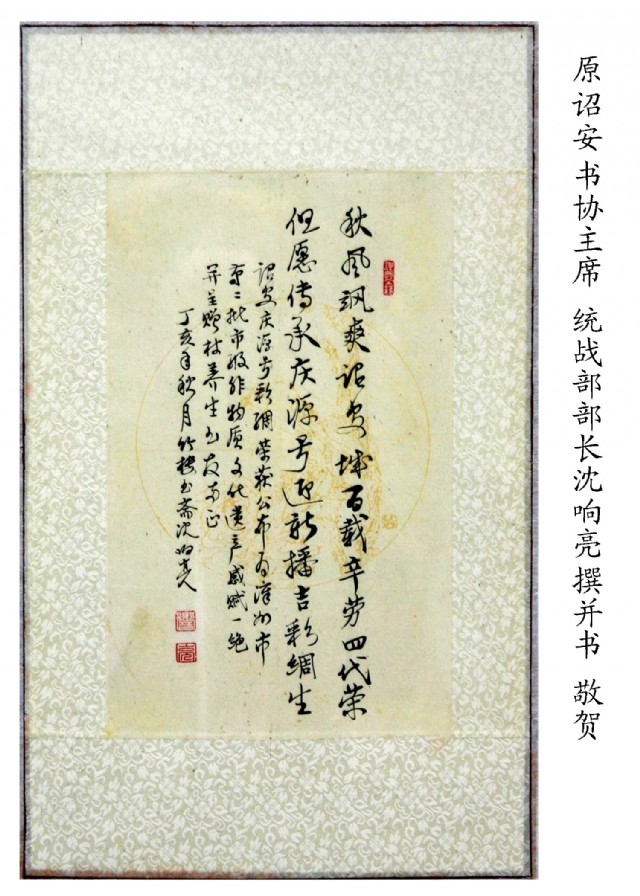 原诏安书协主席 统战部部长沈响亮撰并书 敬贺
秋风飒爽诏安城百载辛劳四代荣
但愿传承庆源号迎新播吉彩绸生
诏安庆源号彩绸荣获公布为漳州市
第二批市级非物质文化遗产感赋一绝
并赠林养生友正
丁亥年秋月竹楼书斋沈响亮